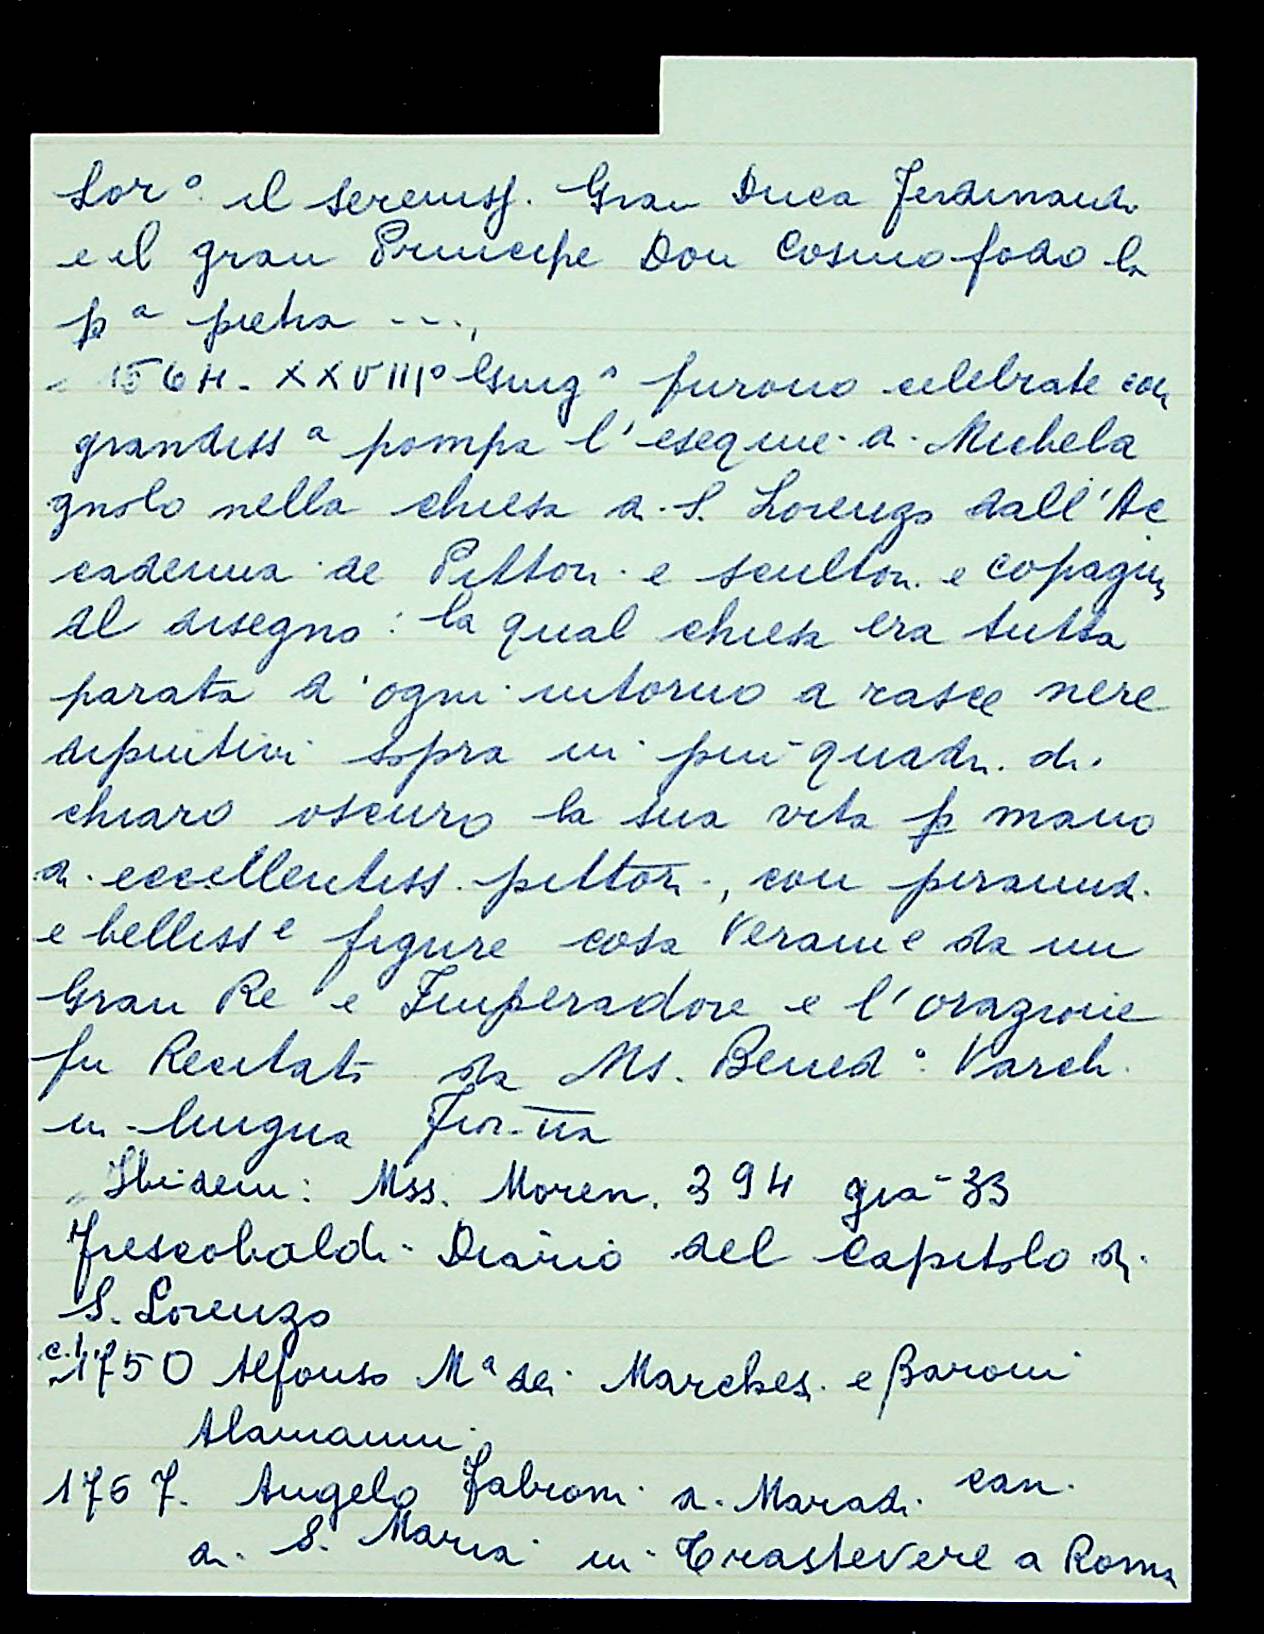 Lorº il sereniss. Gran Duca Ferdinando
e il gran Principe Don Cosimo fodo la
pª pietra ---,
1564 - XXVIIIº Giugº furono celebrate con
grandissª pompa l'esequie di Michela
gnolo nella chiesa di S. Lorenzo dall'Ac
cademia de Pittori e scultori e copagni
al disegno: la qual chiesa era tutta
parata d'ogni intorno a rasce nere
dipintivi sopra in piu quadri di
chiaro oscuro la sua vita p mano
di eccellentiss. pittori, con piramidi
e bellissᵉ figure cosa Veramᵉ da un
Gran Re e Imperadore e l'orazione
fu Recitata da Ms. Benedº Varchi
in lingua Fior-na
Ibidem: Mss. Moren. 394 gia 33
Frescobaldi Diario del Capitolo di
S. Lorenzo
1750 Alfonso Mª dei Marchesi e Baroni
Alamanni
1767. Angelo Fabroni di Maradi can.
di S. Maria in Trastevere a Roma